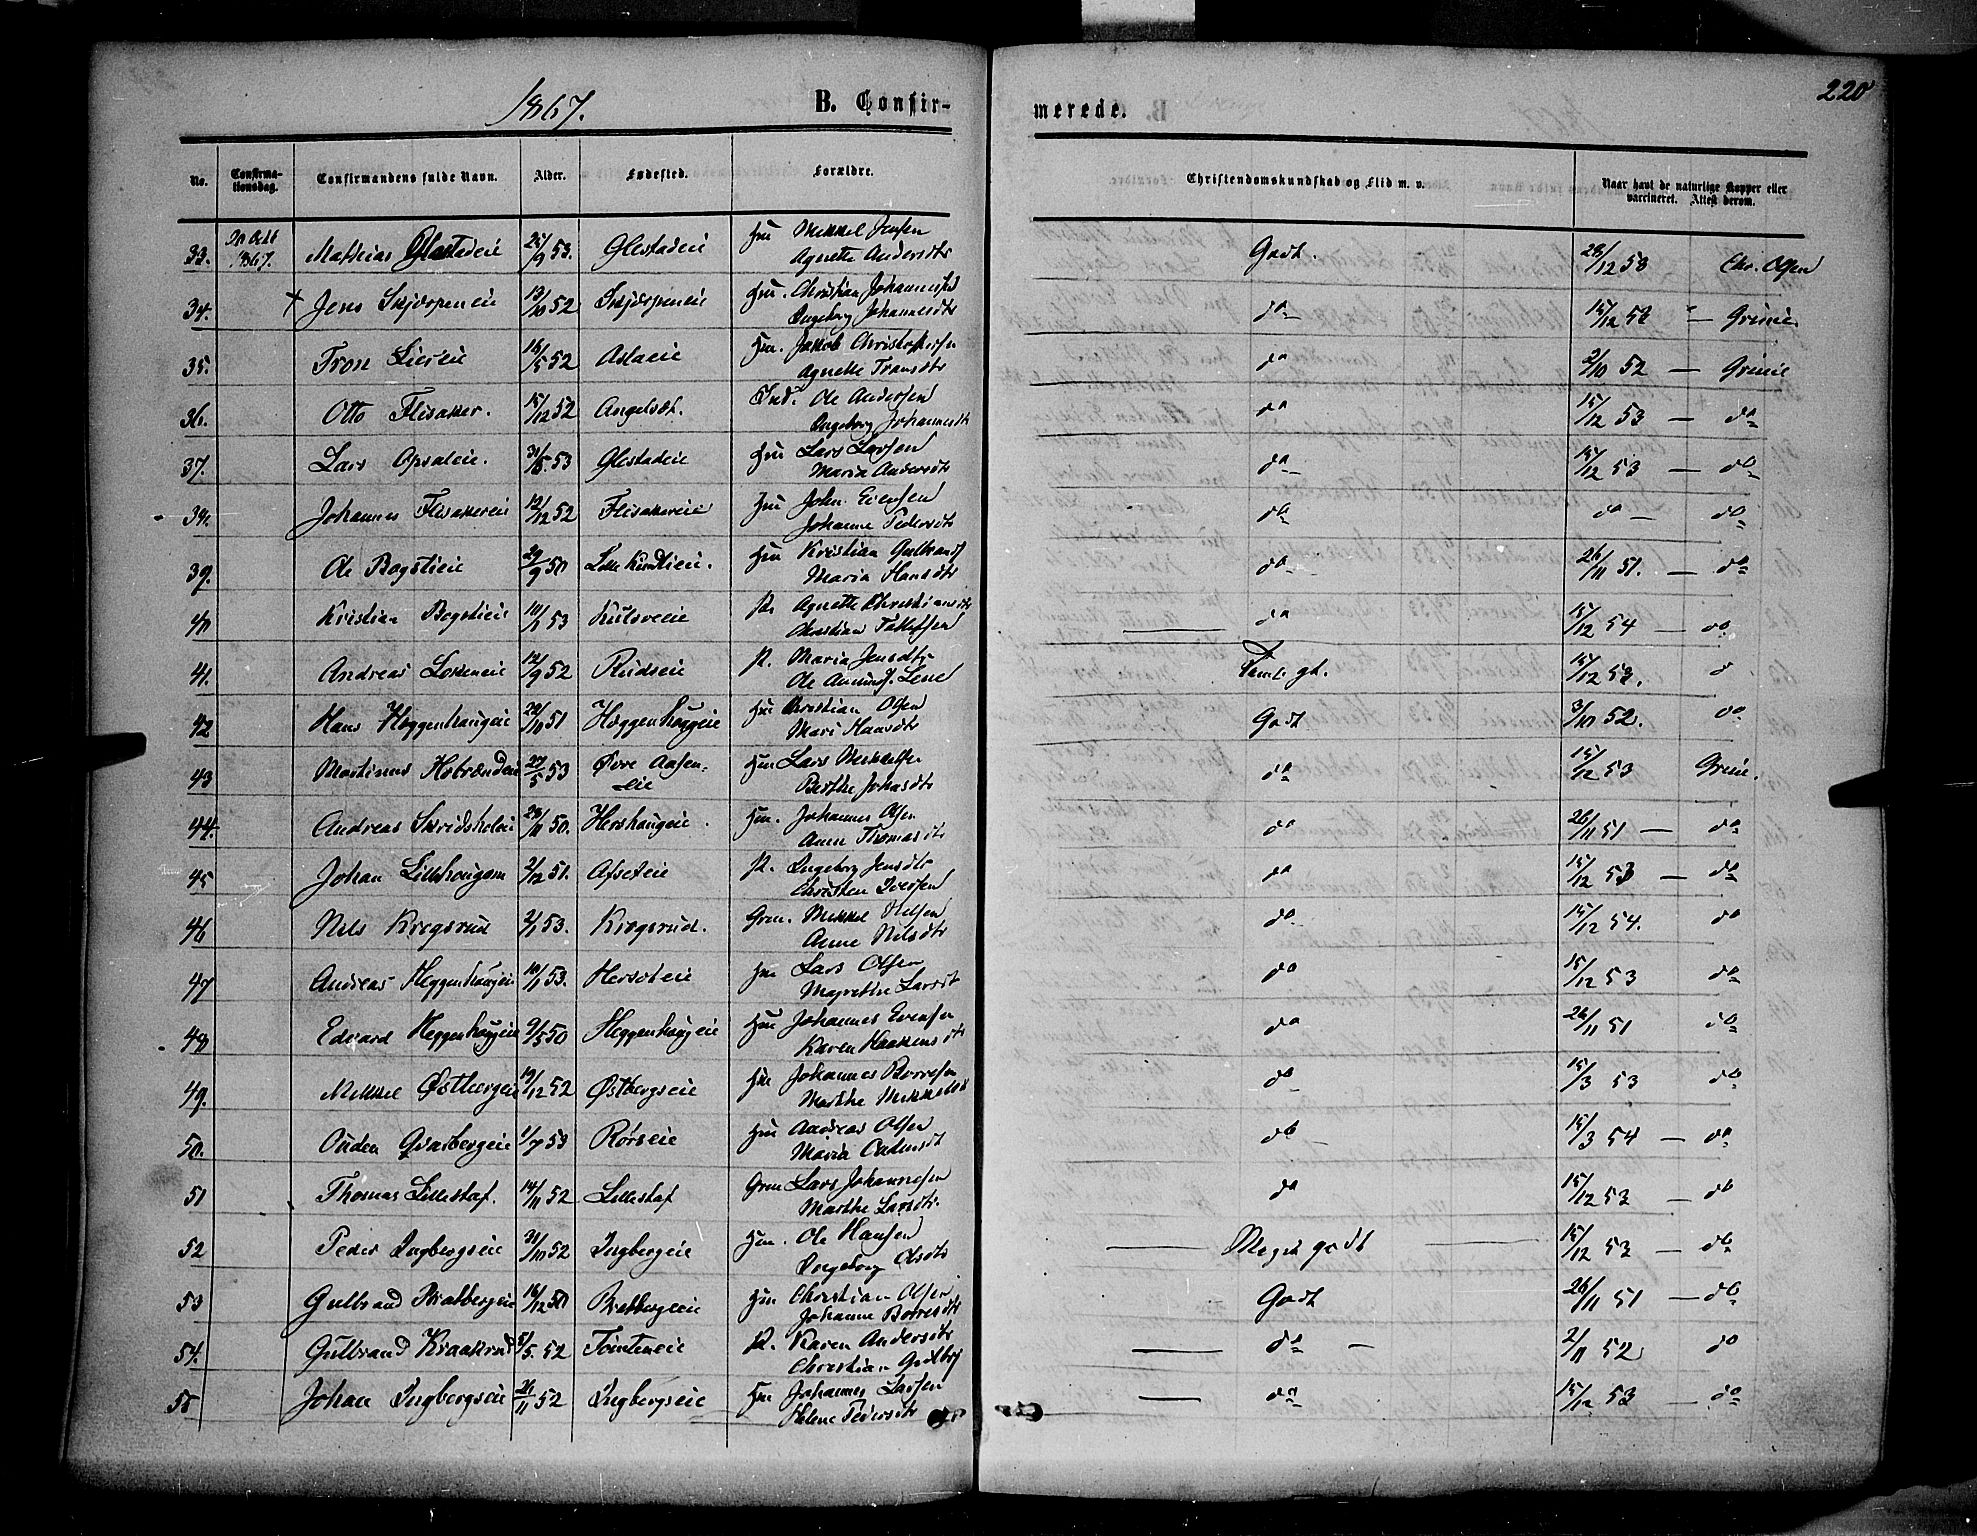 1867.
B. Confir-
merede.
220
No.
Confirma-
tionsdag.
Confirmandens fulde Navn.
Alder.
Fødested.
Forældre.
Christendomskundskab og Flid m. v.
Naar havt de naturlige Kopper eller
vaccineret. Attest derom.
33. 1867. Mathias Glestadeie 9 53. Glestadeie Hm Mikkel Jensen
Agnethe Andersdtr
Godt. 28/12 53 Chr. Olsen
34. + Jens Skjærpeneie 13/10 52 Skjærpeneie Hm. Christian Johannesen
Ingeborg Johannesdtr
do 15/12 52 - Grimie
35. Tron Liereie 16/5 52 Astaeie Hm. Jakob Christophersen
Agnethe Transdtr
do 2/10 52 - Grimie
36. Otto Flisaker. 15/12 52 Angelsæt. Ind. Ole Andersen
Ingeborg Johannesdtr
do 15/12 53 - do
37. Lars Opsaleie. 31/5 53 Glestadeie Hm Lars Larsen
Maria Andersdtr
do 15/12 53 - do
38. Johannes Flisakereie 12/12 52 Flisakereie Hm John Evensen
Johanne Pedersdtr
do do - do
39. Ole Bogstieie 29/9 50 Lille Kindlieie. Hm Kristian Gulbrands
Maria Hansdtr
do 26/11 51. - do
40 Kristian Bogstieie 10/1 53 Kulsveeie P. Agnethe Christiansdtr
Christian Tollefsen
do 15/12 54 - do
41. Andreas Løkeneie 12/9 52 Rudseie P. Maria Jensdtr
Ole Amunds. Lene
Temlig gt. 15/12 52. do
42 Hans Heggenhaugeie 22/10 51 Heggenhaugeie Hm Christian Olsen
Mari Hansdtr
Godt 3/10 52. do
43 Martinus Hobrændeie 27/5 53 Øvre Aasen-
eie
Hm Lars Mikkelsen
Berthe Johansdtr
do 15/12 53 Grimie.
44. Andreas Skridsholeie 28/11 50. Hershaugeie Hm. Johannes Olsen
Anne Thomasdtr
do 26/11 51 - do
45 Johan Lillehaugom 2/12 51. Afseteie P. Ingeborg Jensdtr
Christen Iversen
do 15/12 53 - do
46 Nils Krogsrud 2/1 53. Krogsrud. Grm. Mikkel Nilsen
Anne Nilsdtr
do 15/12 54. do
47 Andreas Heggenhaugeie 10/1 53. Hersæteie Hm Lars Olsen
Magrethe Larsdtr
do 15/12 53 do
48 Edvard Heggenhaugeie 9/5 50 Heggenhaugeie Hm Johannes Evensen
Karen Haakensdtr
do 26/11 51 do
49. Mikkel Østbergeie 19/12 52 Østbergseie Hm Johannes Borresen
Marthe Mikkelsdtr
do 15/3 53 do
50. Ouden Qvarbergeie 1/7 53 Rørseie Hm Andreas Olsen
Maria Oudensdtr
do 15/3 54 - do
51 Thomas Lillestaf. 14/11 52 Lillestaf Grm Lars Johannesen
Marthe Larsdtr.
do 15/12 53 - do
52 Peder Ingbergseie 31/10 52 Ingbergeie Hm. Ole Hansen
Ingeborg Olsdtr
Meget godt 15/12 53 - do
53 Gulbrand Bratbergeie 16/12 50 Bratbergeie Hm Christian Olsen
Johanne Borresdtr
Godt 26/11 51 - do
54. Gulbrand Kraakrud 5. 52 Tomteneie P. Karen Andersdtr
Christian Gulbr
do - 2/11 52 do
55 Johan Ingbergseie 26/11 52 Ingbergseie Hm Johannes Larsen
Helene Pedersdtr
do 15/12 53 - do